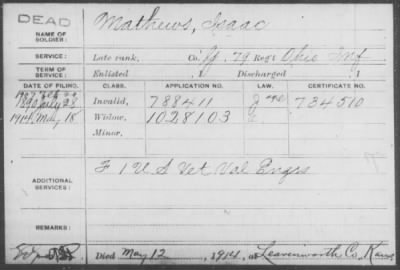 DEAD
NAME OF SOLDIER: Mathews, Isaac
SERVICE: Late rank, Co. G, 79 Reg't Ohio Inf
TERM OF SERVICE: Enlisted , 1 Discharged , 1
DATE OF FILING. CLASS. APPLICATION NO. LAW. CERTIFICATE NO.
1890 July 28 Invalid, 788411 734510
1914, May 18 Widow, 1028103
Minor,
ADDITIONAL SERVICES: F 1 U S Vet Vol Engrs
REMARKS:
Died May 12, 1914, at Leavenworth Co, Kans